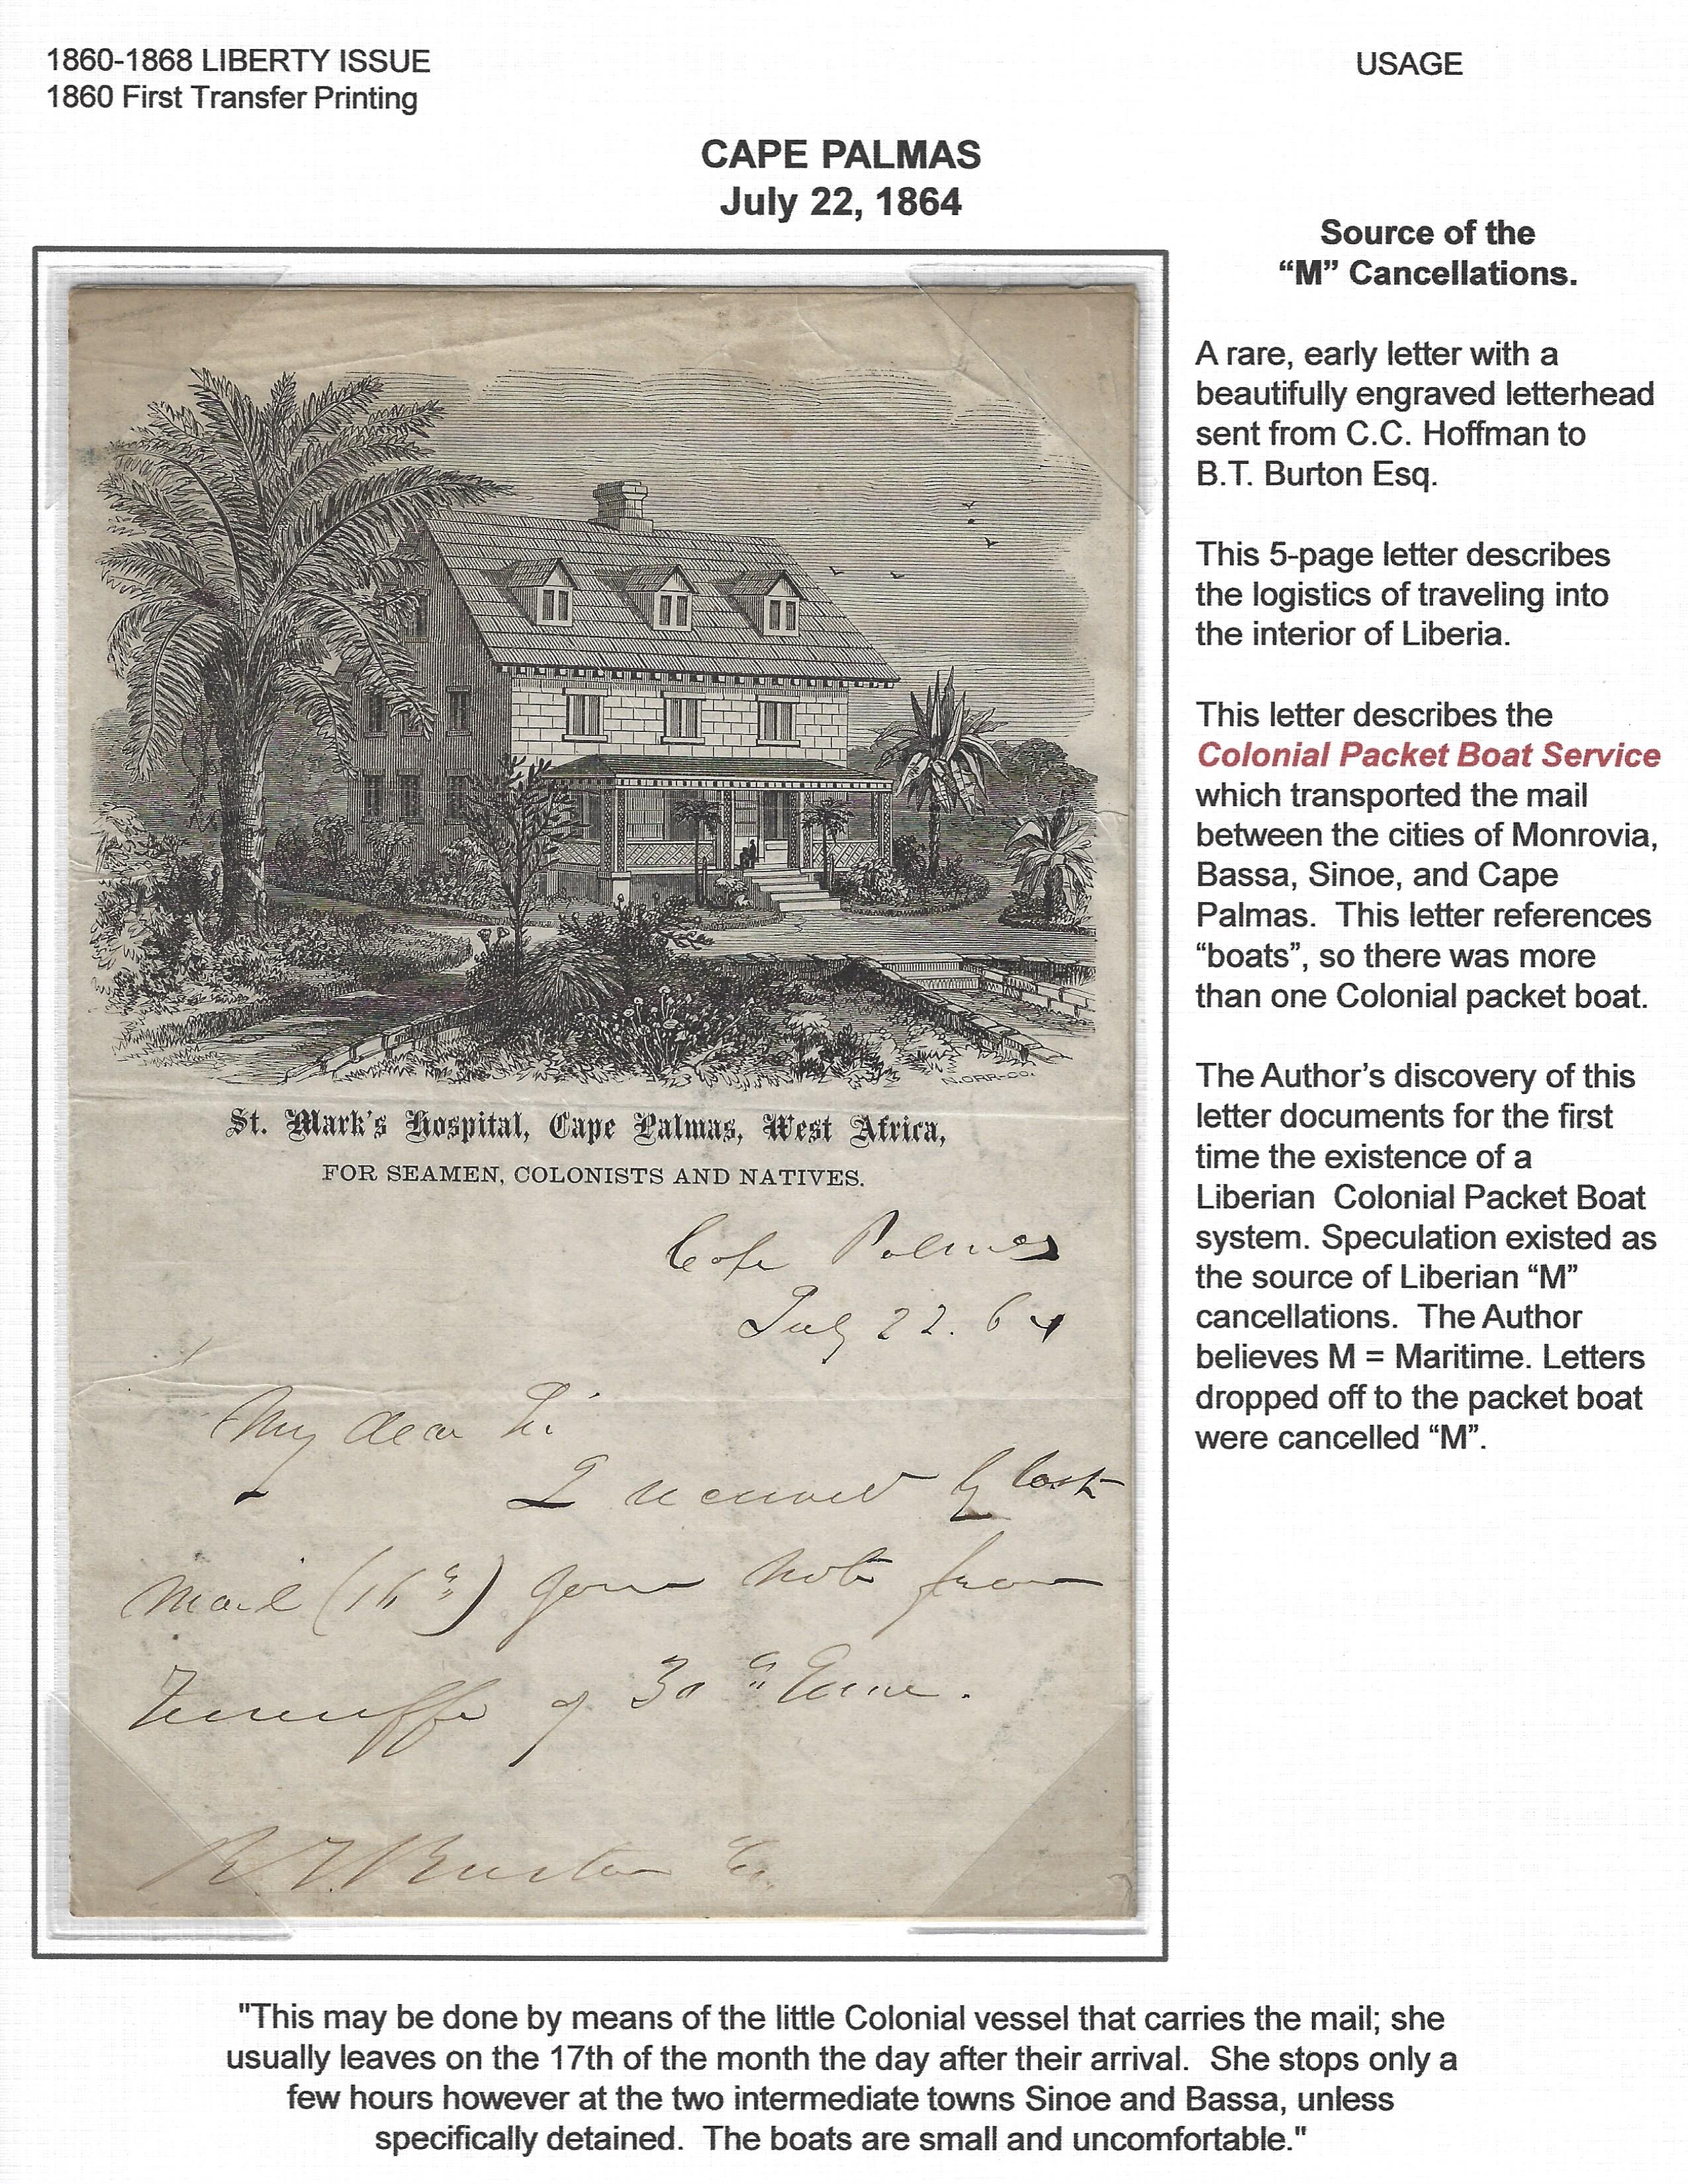 1860-1868 LIBERTY ISSUE
1860 First Transfer Printing
USAGE
CAPE PALMAS
July 22, 1864
Source of the
“M” Cancellations.
A rare, early letter with a
beautifully engraved letterhead
sent from C.C. Hoffman to
B.T. Burton Esq.
This 5-page letter describes
the logistics of traveling into
the interior of Liberia.
This letter describes the
Colonial Packet Boat Service
which transported the mail
between the cities of Monrovia,
Bassa, Sinoe, and Cape
Palmas.  This letter references
“boats”, so there was more
than one Colonial packet boat.
The Author’s discovery of this
letter documents for the first
time the existence of a
Liberian  Colonial Packet Boat
system. Speculation existed as
the source of Liberian “M”
cancellations.  The Author
believes M = Maritime. Letters
dropped off to the packet boat
were cancelled “M”.
N.ORR-CO.
St. Mark's Hospital, Cape Palmas, West Africa,
FOR SEAMEN, COLONISTS AND NATIVES.
Cape Palmas
July 22. 64
My dear Sir
I received by last
mail (16th) your note from
Teneriffe of 30th June.
Burton Esq.
"This may be done by means of the little Colonial vessel that carries the mail; she
usually leaves on the 17th of the month the day after their arrival.  She stops only a
few hours however at the two intermediate towns Sinoe and Bassa, unless
specifically detained.  The boats are small and uncomfortable."